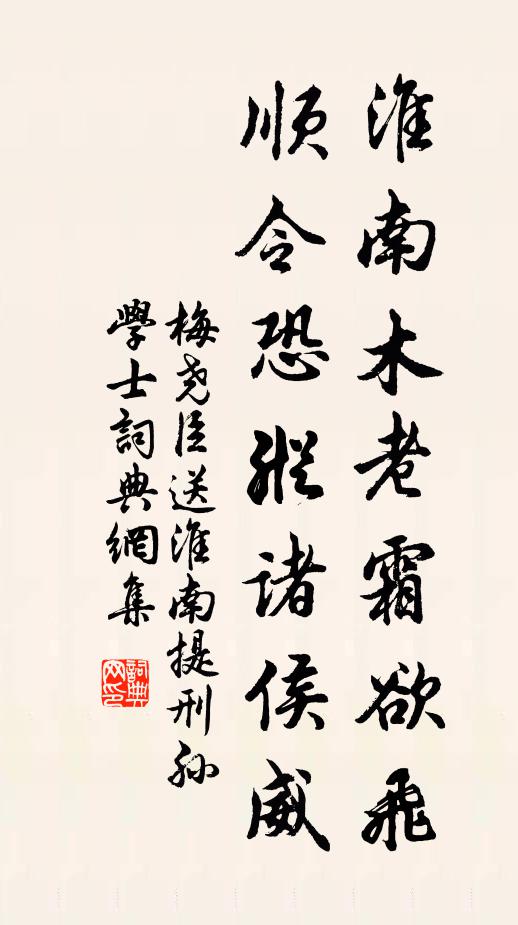 淮南木老霜欲飛
順令恐縱諸侯威
梅尧臣送淮南提刑孙
學士詞典網集
詞典网印